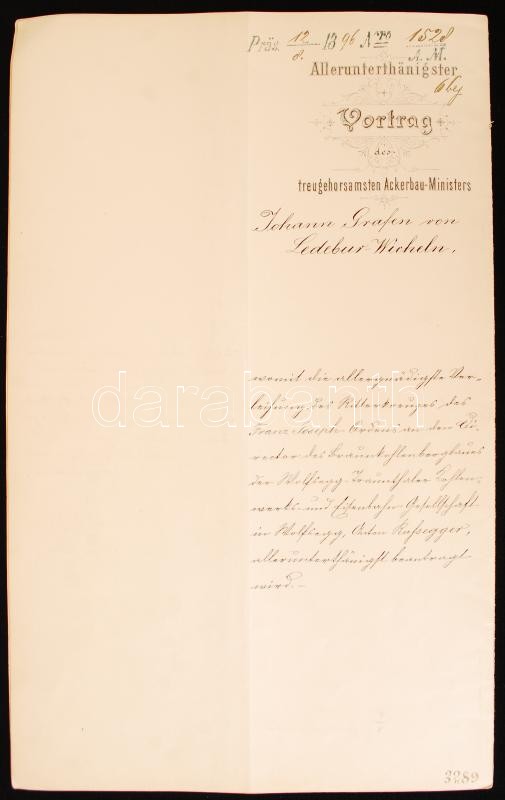 Präs. 12/8. 1896 Nro 1528/A. M.
Allerunterthänigster
Vortrag
des
treugehorsamsten Ackerbau-Ministers
Johann Grafen von
Ledebur-Wicheln,
womit die allergnädigste Ver-
leihung des Ritterkreuzes des
Franz Joseph-Ordens an den Di-
rector des Braunkohlenbergbaues
der Wolfsegg-Traunthaler Kohlen-
werks- und Eisenbahn-Gesellschaft
in Wolfsegg, Anton Rußegger,
allerunterthänigst beantragt
wird.-
darabanth.com
3289